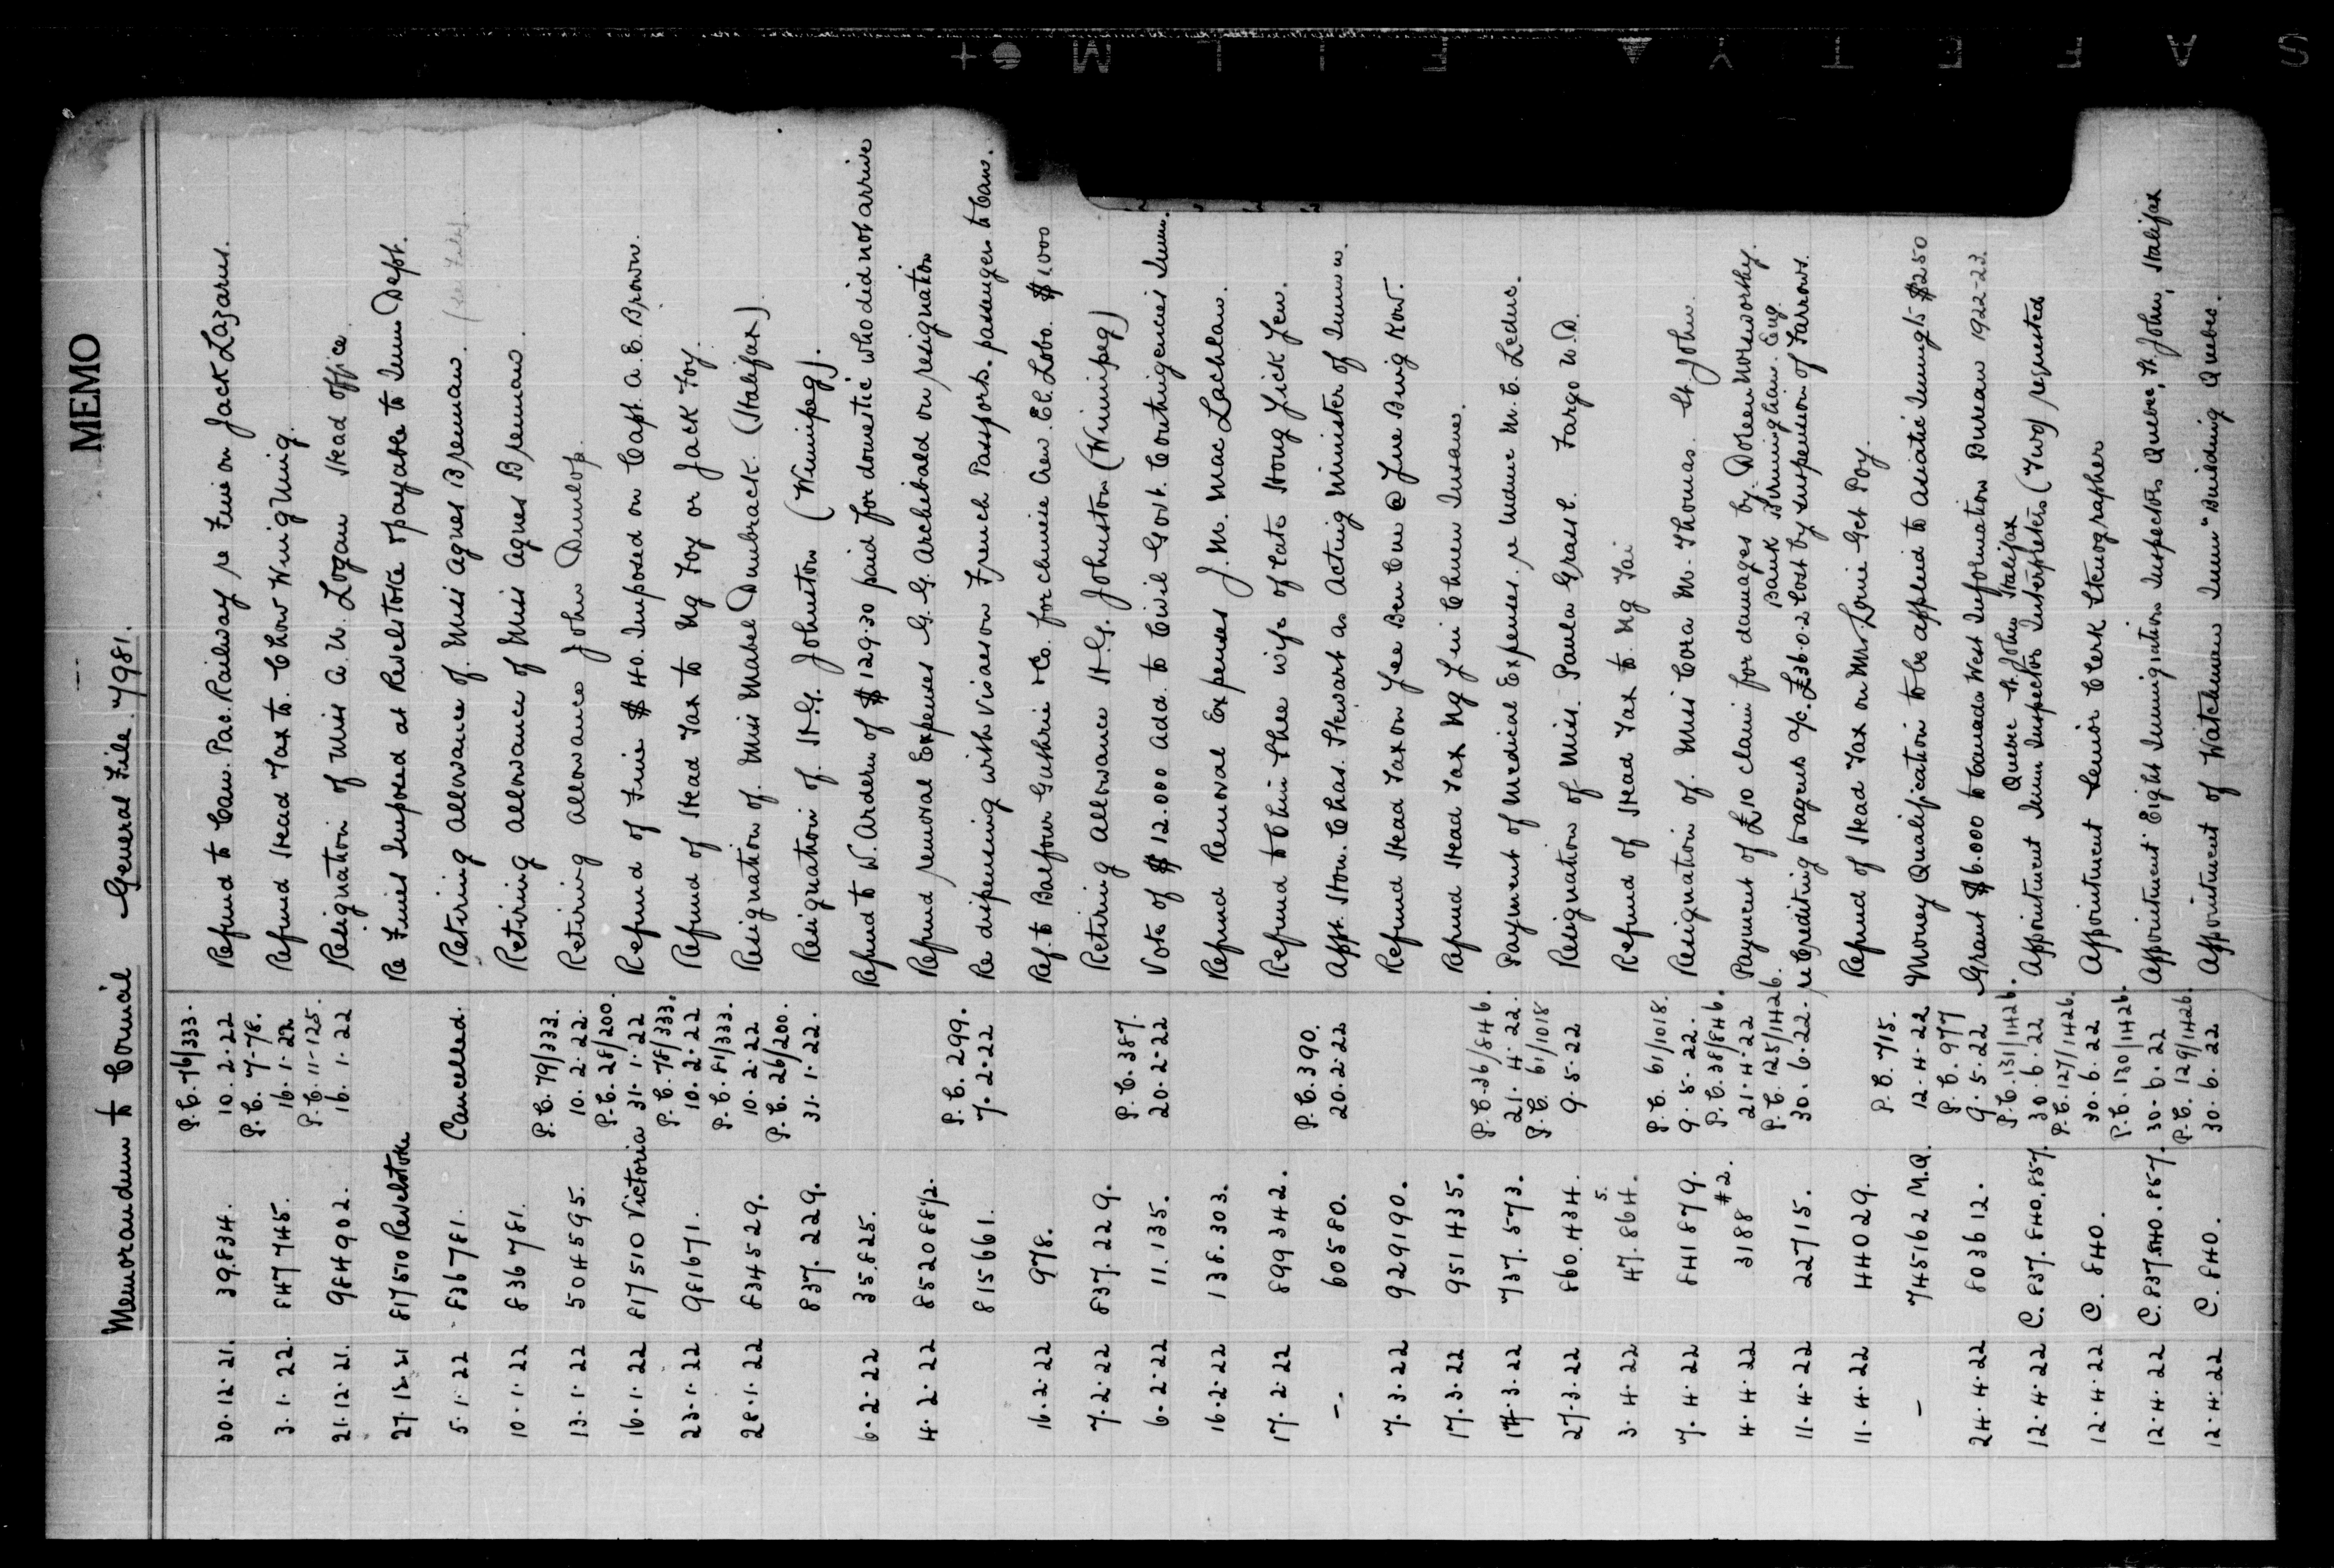 MEMO
Memorandum to Council General File. 7981.
P.C. 76/333.
30.12.21. 39.834. 10.2.22 Refund to Can. Pac. Railway re Fine on Jack Lazarus.
P.C. 7-78.
3.1.22. 847745. 16.1.22 Refund Head Tax to. Chow Wing Ming.
P.C. 11-125.
21.12.21. 984902. 16.1.22 Resignation of Miss A. W. Logan Head Office.
27.12.21 817510 Revelstoke Re Fines Imposed at Revelstoke & payable to Immn Dept.
5.1.22 836781. Cancelled. Retiring Allowance of. Miss Agnes Brennan.
10.1.22 836781. Retiring Allowance of Miss Agnes Brennan.
P.C. 79/333.
13.1.22 504595. 10.2.22. Retiring Allowance John Dunlop.
P.C. 28/200.
16.1.22 817510 Victoria 31.1.22 Refund of Fine $40. Imposed on Capt. A. E. Brown.
P.C. 78/333.
23.1.22 981671. 10.2.22 Refund of Head Tax to Ng Foy or Jack Foy.
P.C. 81/333.
28.1.22 834529. 10.2.22 Resignation of. Miss Mabel Dumbrack. (Halifax)
P.C. 26/200.
837.229. 31.1.22. Resignation of. H.G. Johnston (Winnipeg).
6.2.22 35.825. Refund to W. Ardern of $129.30 paid for domestic who did not arrive
4.2.22 852088/2. Refund removal Expenses G. G. Archibald on resignation
P.C. 299.
815661. 7.2.22 Re dispensing with Visaes on French Passports. passengers to Can.
16.2.22 978. Ref. to Balfour Guthrie & Co. for chinese crew. El. Lobo. $1000
7.2.22 837.229. Retiring Allowance H.G. Johnston (Winnipeg)
P.C. 387.
6.2.22 11.135. 20.2.22 Vote of $12.000 add. to Civil Govt. Contingencies Immn.
16.2.22 138.303. Refund Removal Expenses J. M. Mac Lachlan.
17.2.22 899342. Refund to Chin Shee wife of late Hong Yick Yen.
P.C. 390.
-. 60580. 20.2.22 Appt. Hon. Chas. Stewart as Acting Minister of Immn.
7.3.22 929190. Refund Head Tax on Yee Ben Cun @ June Bing Kow.
17.3.22 951435. Refund Head Tax Ng Yin Chuen Insane.
P.C. 36/846.
14.3.22 737.573. 21.4.22. Payment of Medical Expenses. re Indinc M. E. Leduc.
P.C. 61/1018
27.3.22 860.434. 9.5.22 Resignation of Miss. Paula Grasse. Fargo N.D.
3.4.22 47.864.5. Refund of Head Tax to. Ng Tai
P.C. 61/1018.
7.4.22 841879. 9.5.22. Resignation of. Miss Cora M. Thomas. St. John
P.C. 38/846.
4.4.22 3188 #2. 21.4.22 Payment of £10 claim for damages by. Doreen Worsworthy.
Bank Birmingham. Eng.
P.C. 125/1426.
11.4.22 22715. 30.6.22. re Crediting to agents a/c. £36.0.2 Lost by suspension of Farrows.
11.4.22 44029. Refund of Head Tax on Mrs Louie Get Poy.
P.C. 715.
- 745162 M.Q. 12.4.22 Money Qualification to be applied to Asiatic Immgts $250
P.C. 977
24.4.22 803612. 9.5.22 Grant $6.000 to Canada West Information Bureau 1922-23.
P.C. 131/1426. Quebec St. John Halifax
12.4.22 C. 837.840.857. 30.6.22 Appointment Immn Inspectors Interpreters (Two) requested
P.C. 127/1426.
12.4.22 C. 840. 30.6.22 Appointment Senior Clerk Stenographer
P.C. 130/1426.
12.4.22 C. 837.840.857. 30.6.22 Appointment Eight Immigration Inspectors Quebec, St. John, Halifax
P.C. 129/1426.
12.4.22 C. 840. 30.6.22 Appointment of Watchman Immn Building Quebec.
S A F E T Y ▲ F I L M